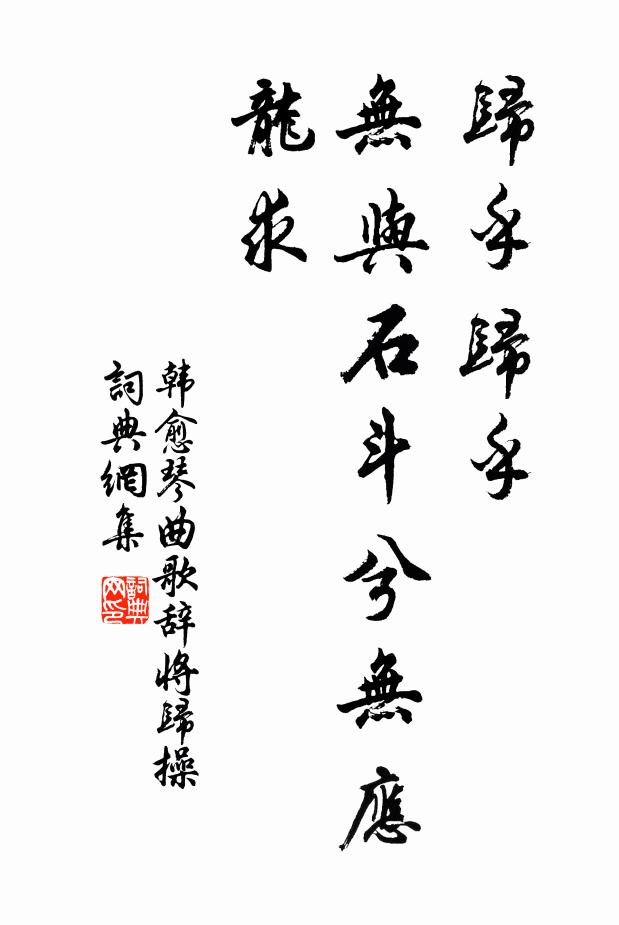 歸乎歸乎
無與石斗兮無應
龍求
韩愈琴曲歌辞将歸操
詞典網集
詞典
网印